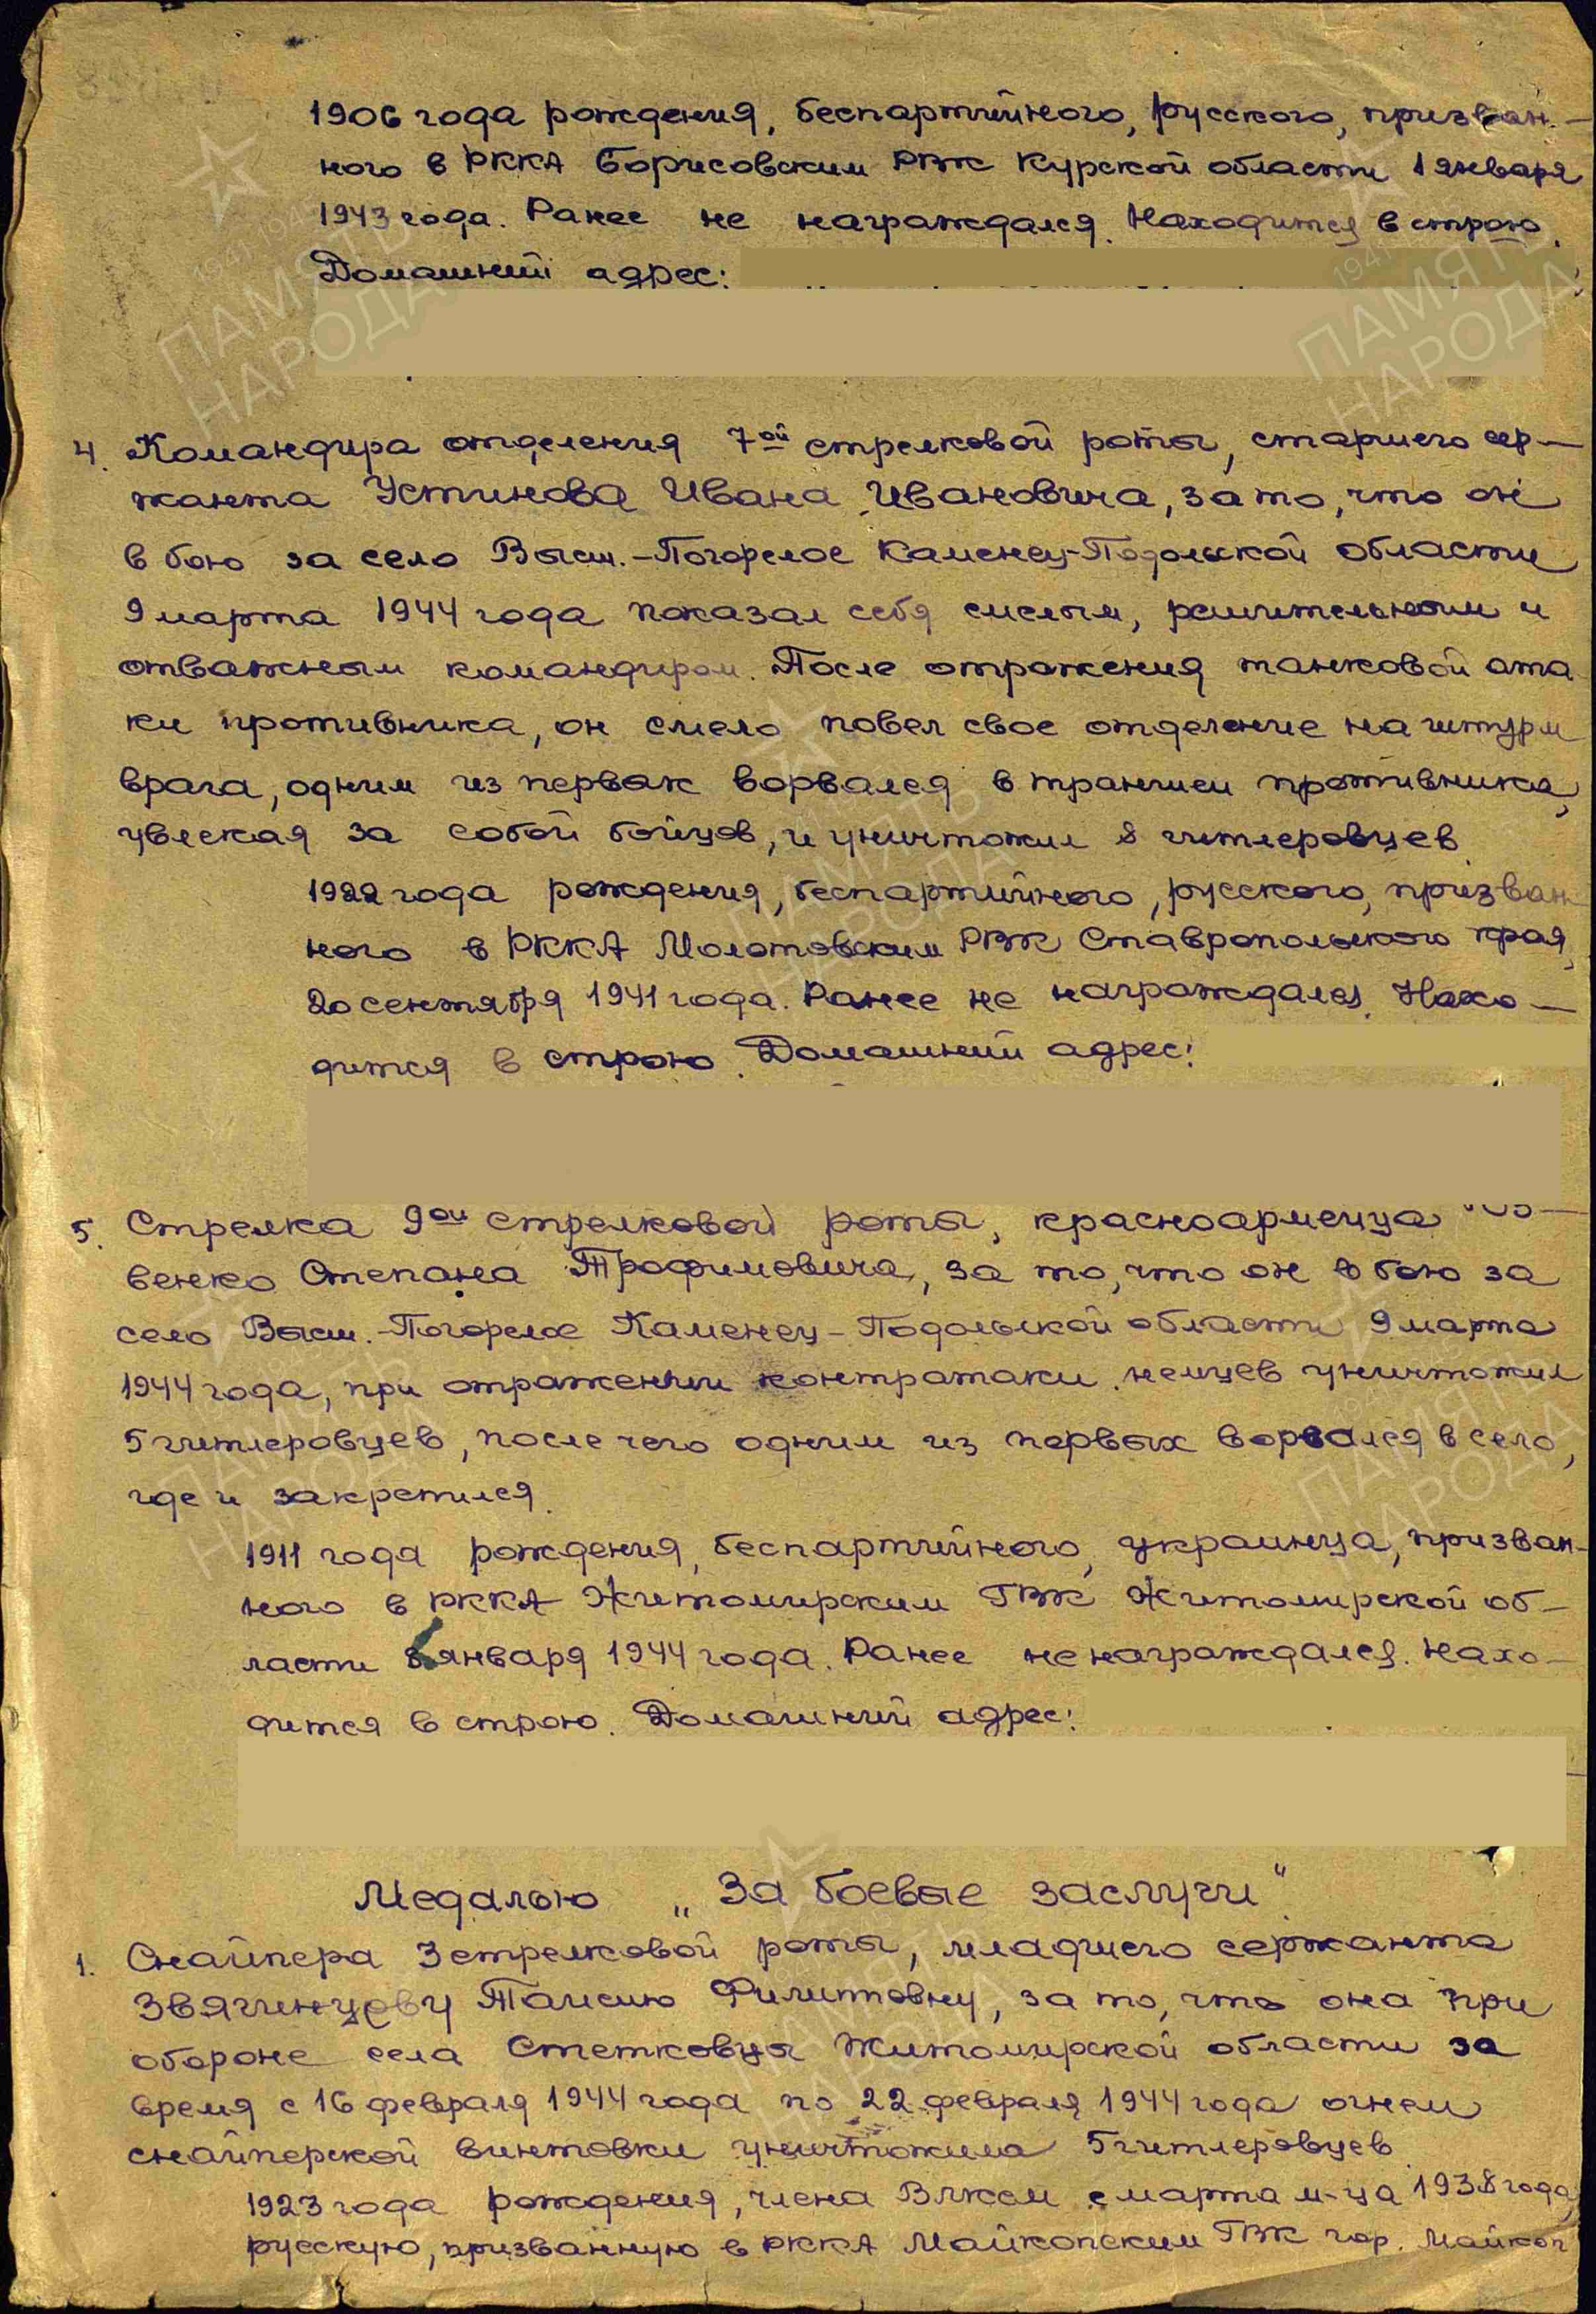 1906 года рождения, беспартийного, русского, призван-
ного в РККА Борисовским РВК Курской области 1 января
1943 года. Ранее не награждался. Находится в строю.
Домашний адрес:
4. Командира отделения 7ой стрелковой роты, старшего сер-
жанта Устинова Ивана Ивановича, за то, что он
в бою за село Высш.-Погорелое Каменец-Подольской области
9 марта 1944 года показал себя смелым, решительным и
отважным командиром. После отражения танковой ата-
ки противника, он смело повел свое отделение на штурм
врага, одним из первых ворвался в траншеи противника,
увлекая за собой бойцов, и уничтожил 8 гитлеровцев.
1922 года рождения, беспартийного, русского, призван-
ного в РККА Молотовским РВК Ставропольского края,
20 сентября 1941 года. Ранее не награждался. Нахо-
дится в строю. Домашний адрес:
5. Стрелка 9ой стрелковой роты, красноармейца
венко Степана Трофимовича, за то, что он в бою за
село Высш.-Погорелое Каменец-Подольской области 9 марта
1944 года, при отражении контратаки немцев уничтожил
5 гитлеровцев, после чего одним из первых ворвался в село,
где и закрепился.
1911 года рождения, беспартийного, украинца, призван-
ного в РККА Житомирским ГВК Житомирской об-
ласти января 1944 года. Ранее не награждался. Нахо-
дится в строю. Домашний адрес:
Медалью „За боевые заслуги"
1. Снайпера 3 стрелковой роты, младшего сержанта
Звягинцеву Таисию Филипповну, за то, что она при
обороне села Стетковцы Житомирской области за
время с 16 февраля 1944 года по 22 февраля 1944 года огнем
снайперской винтовки уничтожила 5 гитлеровцев.
1923 года рождения, члена ВЛКСМ с марта м-ца 1938 года,
русскую, призванную в РККА Майкопским ГВК гор. Майкоп
ПАМЯТЬ
НАРОДА